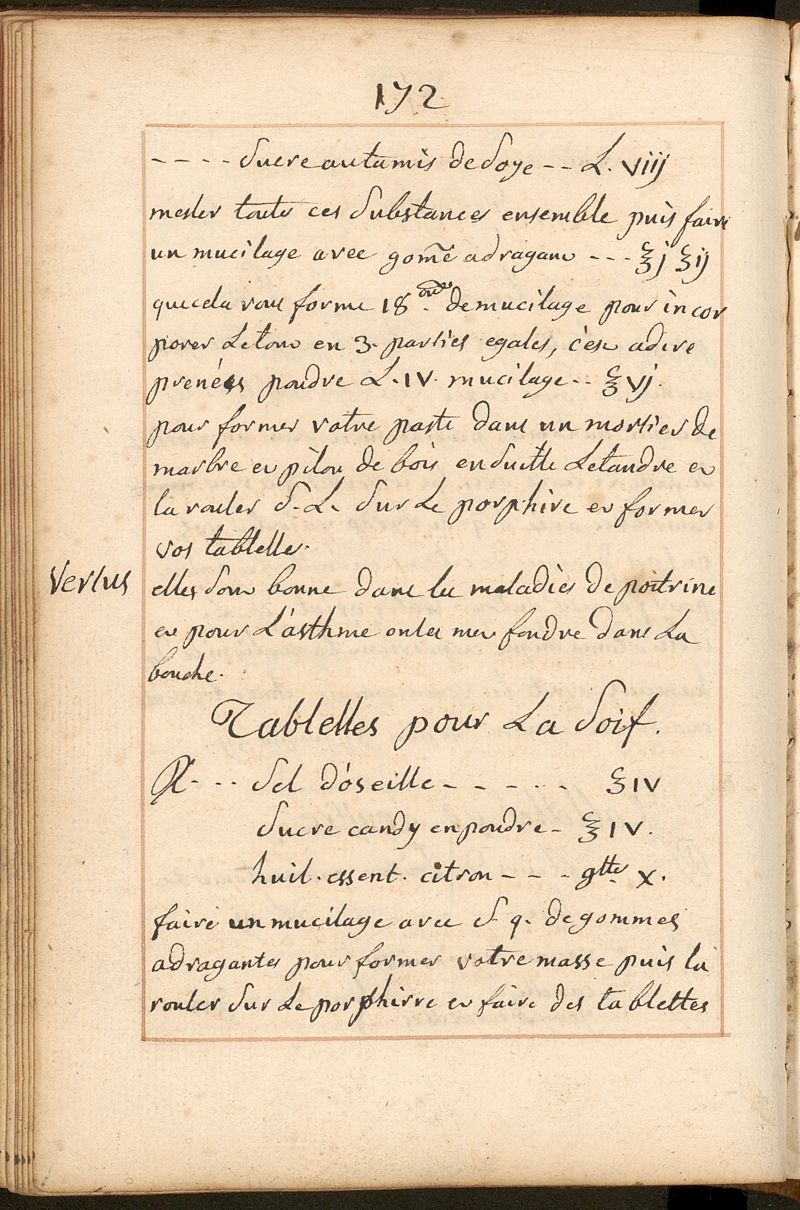 172
---- Sucre autamis de Soye -- L. viij
mesler toutes ces Substances ensemble puis faire
un mucilage avec gom̃e adragant --- ℥j ʒij
que cela vous forme 18 onces de mucilage pour incor
porer Letout en 3. parties egales, c'est adire
prenéés poudre L. IV. mucilage.. ℥vj.
pour former votre paste dans un mortier de
marbre et pilon de bois ensuitte Letandre et
la rouler S. L. Sur Le porphire et former
vos tablettes.
Vertus
elles sont bonne dans les maladies de poitrine
et pour L'asthme on les met fondre dans La
bouche.
Tablettes pour La Soif.
℞... Sel d'oseille ----- ℥IV
Sucre candy en poudre - ℥IV.
huil. essent. citron --- gttes X.
faire un mucilage avec S. q. de gommes
adragantes pour former votre masse puis la
rouler Sur Le porphirre et faire des tablettes